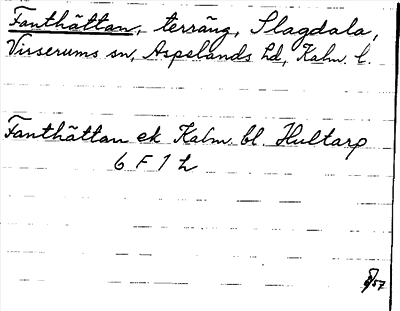 Fanthättan, terräng, Slagdala,
Virserums sn, Aspelands hd, Kalm. l.
Fanthättan ek Kalm. bl. Hultarp
6 F 1 h